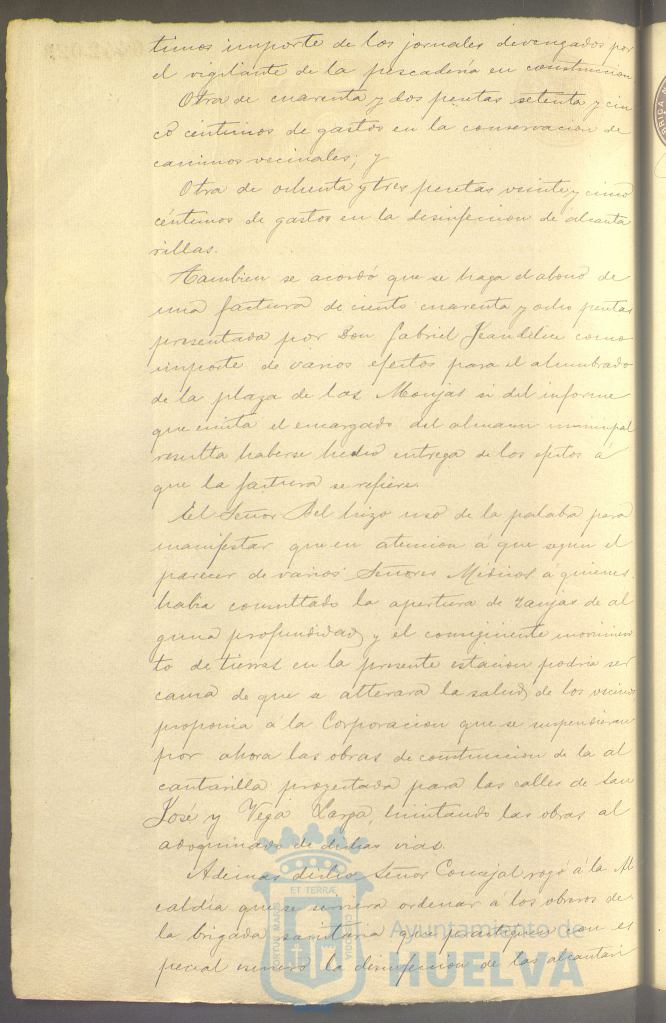 timos importe de los jornales devengados por
el vigilante de la pescadería en construccion
Otra de cuarenta y dos pesetas setenta y cin
co céntimos de gastos en la conservacion de
caminos vecinales; y
Otra de ochenta y tres pesetas veinte y cinco
céntimos de gastos en la desinfeccion de alcanta
rillas.
Tambien se acordó que se haga el abono de
una factura de ciento cuarenta y ocho pesetas
presentada por Don Gabriel como
importe de varios efectos para el alumbrado
de la plaza de las Monjas si del informe
que emita el encargado del almacen municipal
resulta haberse hecho entrega de los efectos á
que la factura se refiere.
El Señor Bel hizo uso de la palabra para
manifestar que en atencion á que segun el
parecer de varios Señores Médicos á quienes
habia consultado la apertura de zanjas de al
guna profundidad y el consiguiente movimien
to de tierras en la presente estacion podria ser
causa de que se alterara la salud de los vecinos
proponia á la Corporacion que se suspendieran
por ahora las obras de construccion de la al
cantarilla proyectada para las calles de San
José y Vega Larga, limitando las obras al
adoquinado de dichas vias.
Ademas dicho Señor Concejal rogó á la Al
caldía que se sirviera ordenar á los obreros de
la brigada sanitaria que practiquen con es
pecial esmero la desinfeccion de las alcantari
ET TERRÆ
PORTUS MARIS
CUSTODIA
Ayuntamiento de
HUELVA